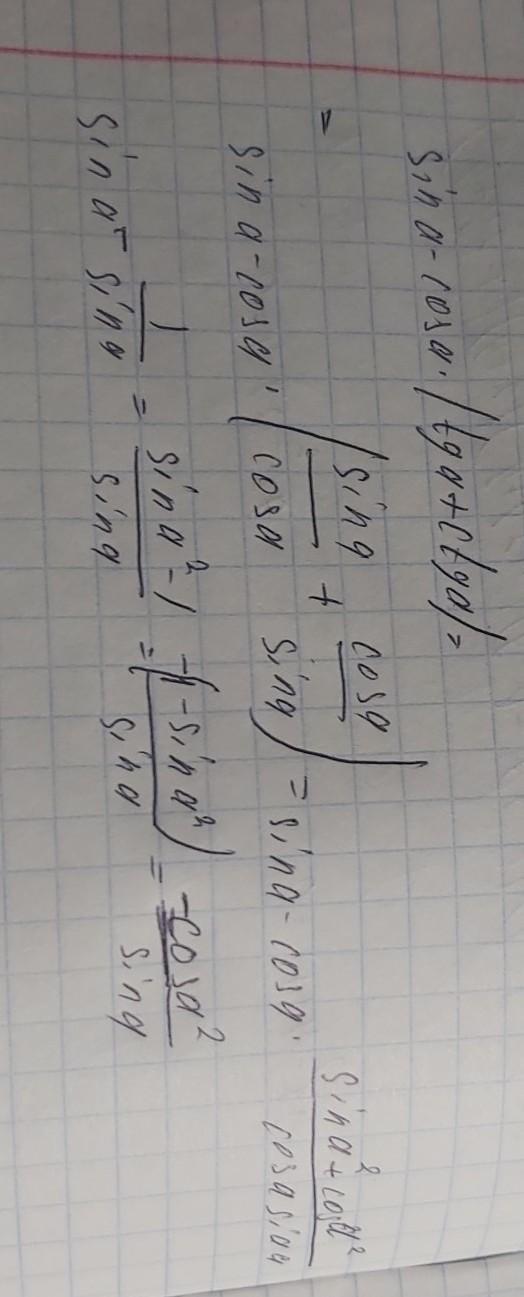 sin a - cos a · (tg a + ctg a) =
= sin a - cos a · (sin a / cos a + cos a / sin a) = sin a - cos a · (sin a² + cos a²) / (cos a sin a)
sin a - 1 / sin a = (sin a² - 1) / sin a = -(1 - sin a²) / sin a = -cos a² / sin a